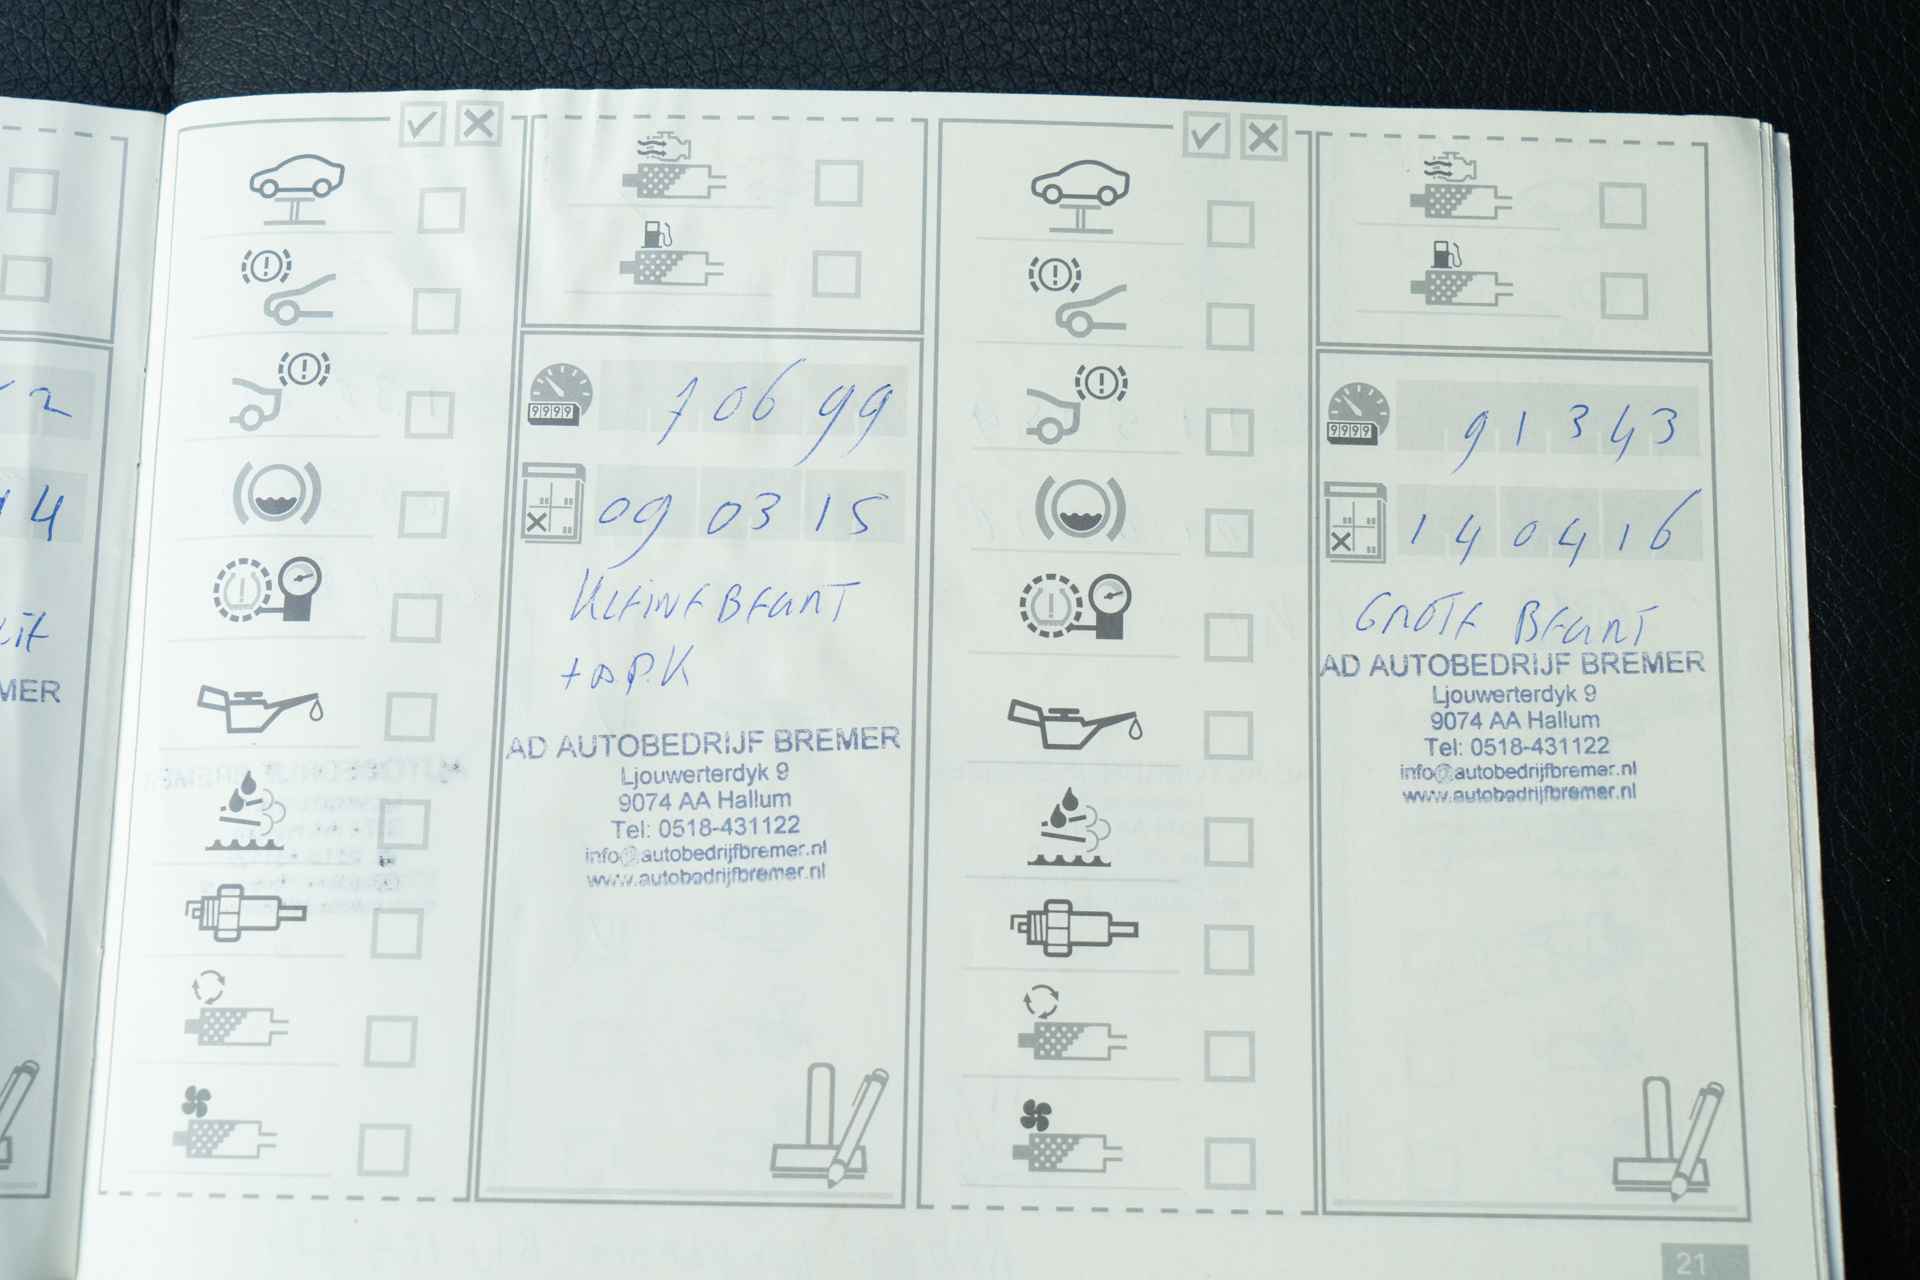 14
MER
9999
70699
09 03 15
KLEINE BEURT
+ A.P.K
AD AUTOBEDRIJF BREMER
Ljouwerterdyk 9
9074 AA Hallum
Tel: 0518-431122
info@autobedrijfbremer.nl
www.autobedrijfbremer.nl
9999
91343
14 04 16
GROTE BEURT
AD AUTOBEDRIJF BREMER
Ljouwerterdyk 9
9074 AA Hallum
Tel: 0518-431122
info@autobedrijfbremer.nl
www.autobedrijfbremer.nl
21